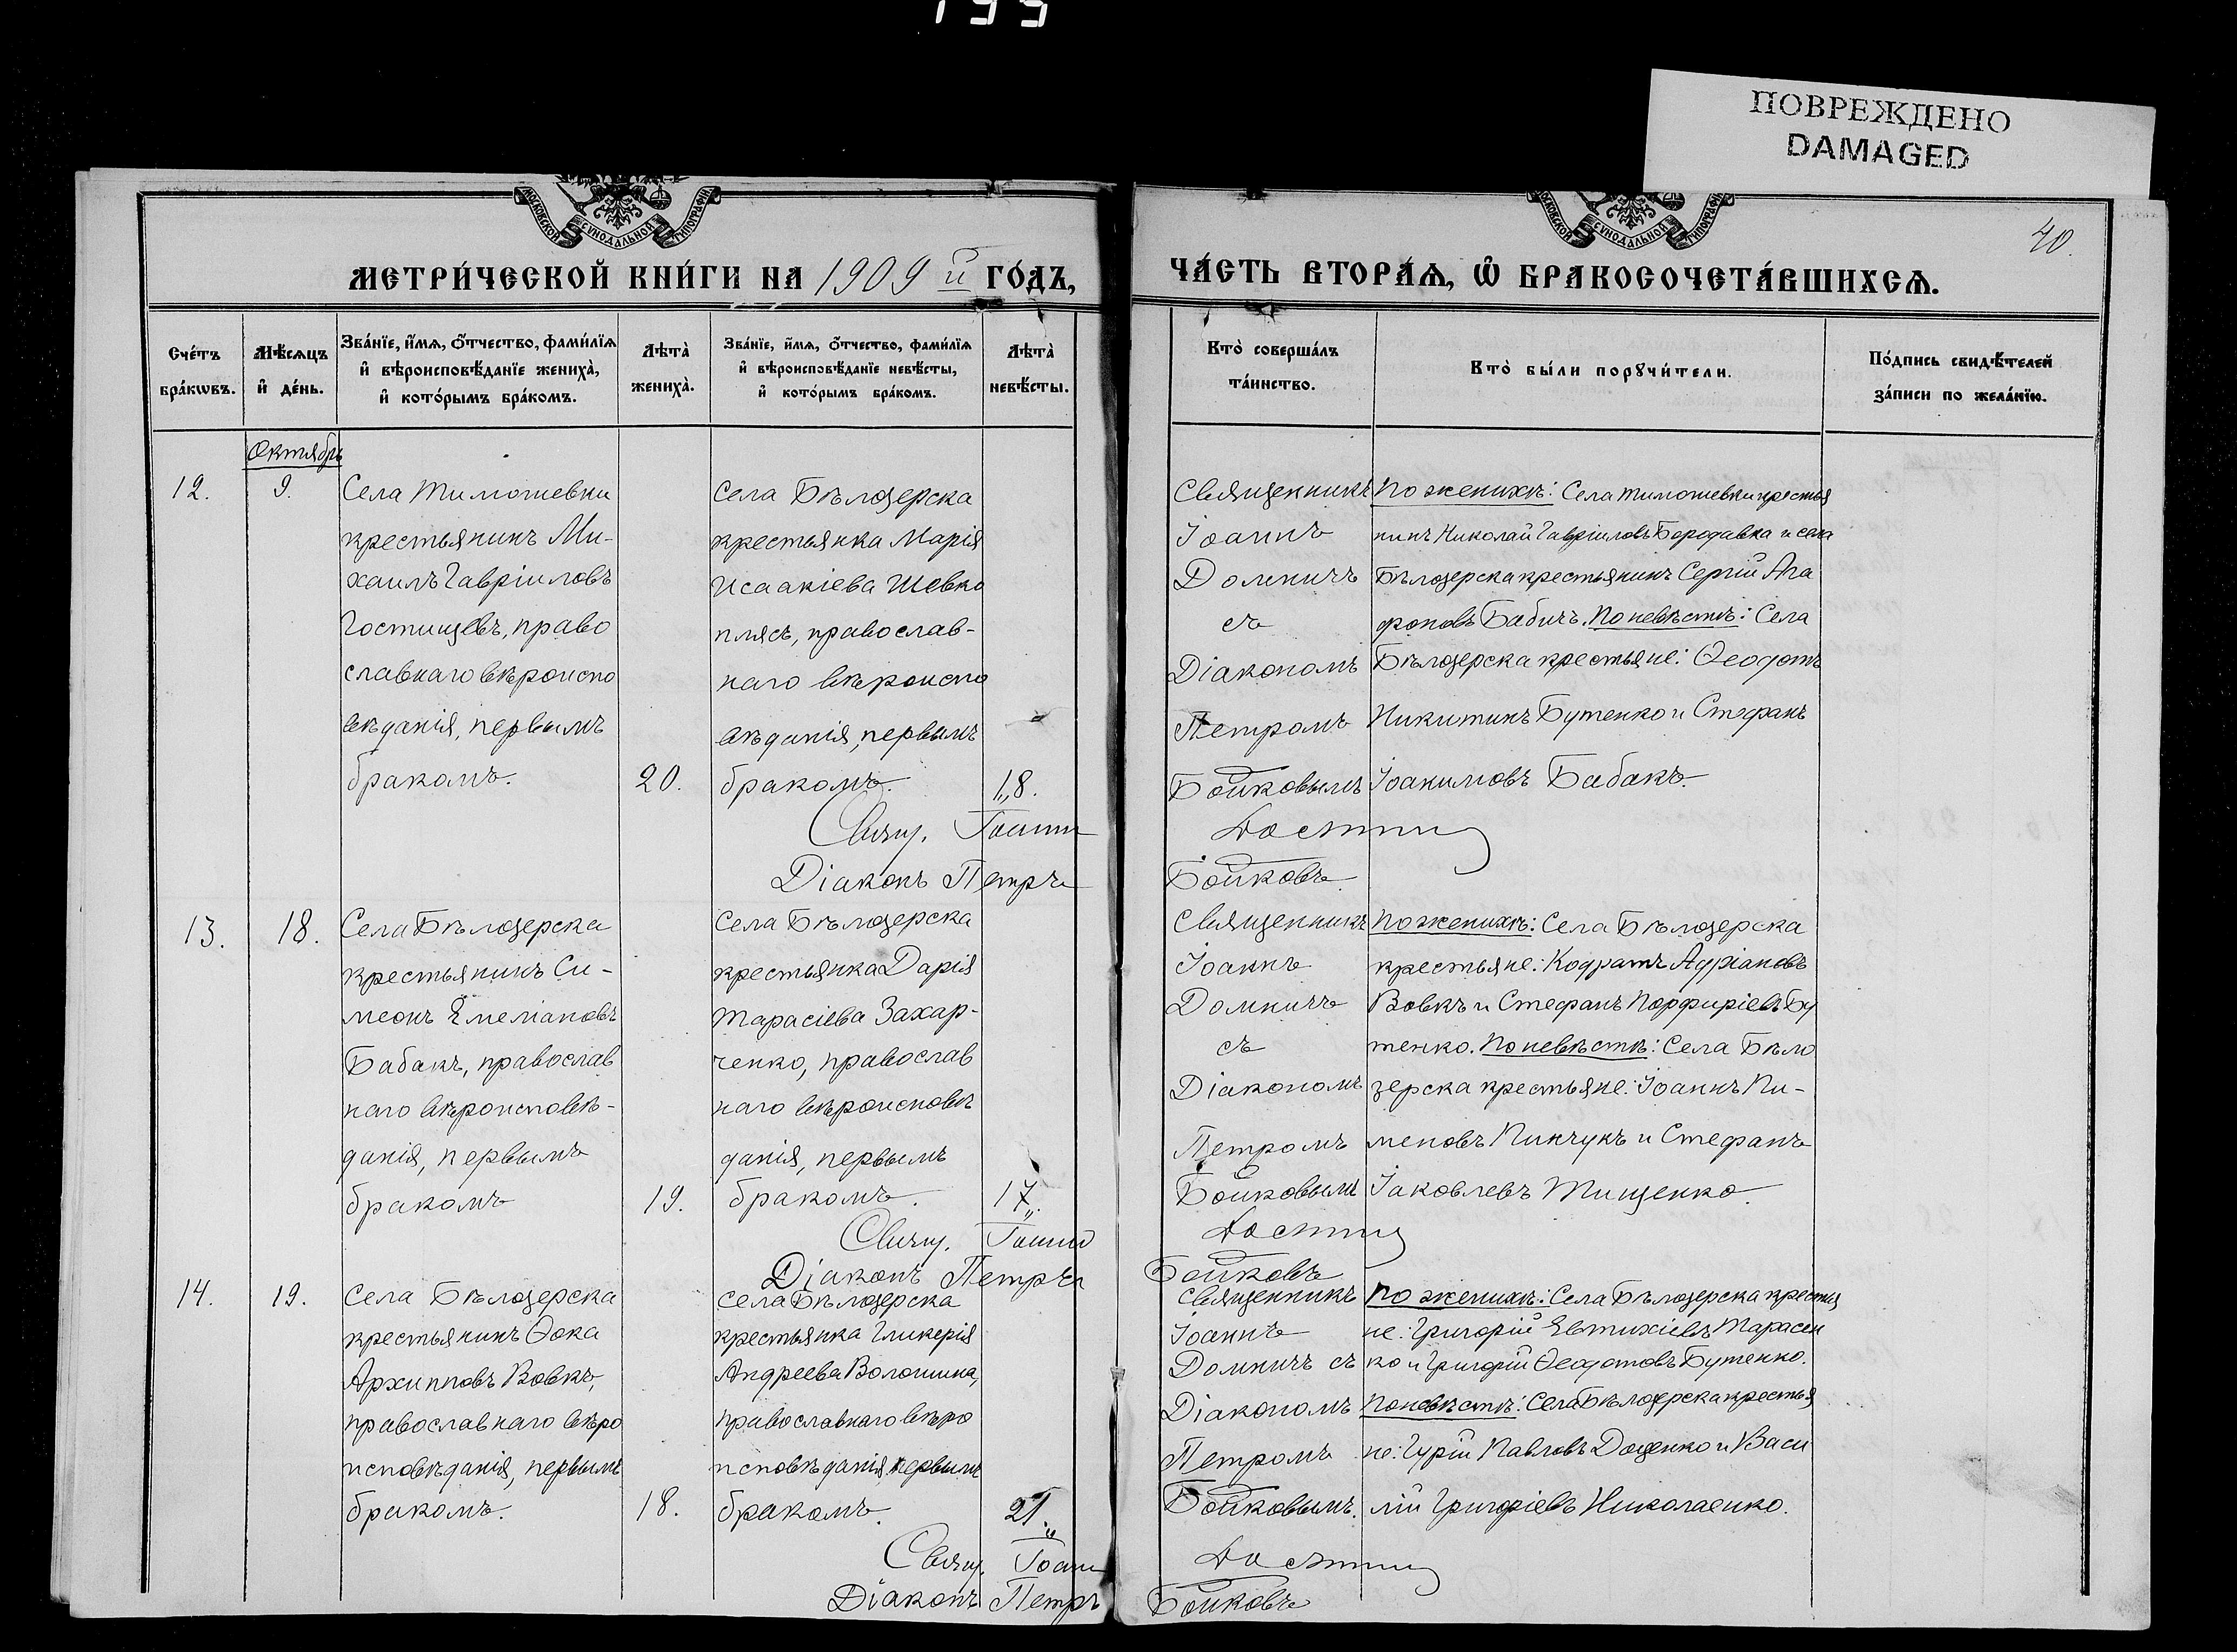 199
ПОВРЕЖДЕНО
DAMAGED
МОСКОВСКОЙ СѴНОДАЛЬНОЙ ТИПОГРАФІИ
МОСКОВСКОЙ СѴНОДАЛЬНОЙ ТИПОГРАФІИ
40.
МЕТРИ́ЧЕСКОЙ КНИ́ГИ НА 1909 й ГО́ДЪ,
ЧА́СТЬ ВТОРА́Ѧ, Ѡ҆ БРАКОСОЧЕТА́ВШИХСѦ.
Сче́тъ
бра́кѡвъ.
Мѣ́сѧцъ
и҆ де́нь.
Зва́нїе, и҆́мѧ, ѻ҆́тчество, фами́лїѧ
и҆ вѣроисповѣ́данїе жениха̀,
и҆ кото́рымъ бра́комъ.
Лѣта̀
жениха̀.
Зва́нїе, и҆́мѧ, ѻ҆́тчество, фами́лїѧ
и҆ вѣроисповѣ́данїе невѣ́сты,
и҆ кото́рымъ бра́комъ.
Лѣта̀
невѣ́сты.
Кто̀ соверша́лъ
та́инство.
Кто̀ бы́ли порꙋчи́тели.
По́дпись свидѣ́телей
за́писи по жела́нїю.
Октябрь
12.
9.
Села Тимошевки
крестьянинъ Ми-
хаилъ Гавріиловъ
Гостищевъ, право
славнаго вѣроиспо
вѣданія, первымъ
бракомъ.
20.
Села Бѣлозерска
крестьянка Марія
Исаакіева Шевко
плясъ, православ-
наго вѣроиспо
вѣданія, первымъ
бракомъ.
18.
Священникъ
Іоаннъ
Домничъ
съ
Діакономъ
Петромъ
Бойковымъ
По женихѣ: Села Тимошевки крестья
нинъ Николай Гавріиловъ Бородавка и села
Бѣлозерска крестьянинъ Сергій Ага
фоновъ Бабичъ. По невѣстѣ: Села
Бѣлозерска крестьяне: Ѳеодотъ
Никитинъ Бутенко и Стефанъ
Іоакимовъ Бабакъ.
Свящ. Іоанн
Діаконъ Петръ Бойковъ
13.
18.
Села Бѣлозерска
крестьянинъ Си-
меонъ Емеліановъ
Бабакъ, православ
наго вѣроисповѣ-
данія, первымъ
бракомъ
19.
Села Бѣлозерска
крестьянка Дарія
Тарасіева Захар-
ченко, православ
наго вѣроисповѣ
данія, первымъ
бракомъ.
17.
Священникъ
Іоаннъ
Домничъ
съ
Діакономъ
Петромъ
Бойковымъ
По женихѣ: Села Бѣлозерска
крестьяне: Кодратъ Адріановъ
Вовкъ и Стефанъ Порфиріевъ Бу
тенко. По невѣстѣ: Села Бѣло
зерска крестьяне: Іоаннъ Пи-
меновъ Пинчукъ и Стефанъ
Іаковлевъ Тищенко.
Свящ. Іоанн
Діаконъ Петръ Бойковъ
14.
19.
Села Бѣлозерска
крестьянинъ Ѳока
Архипповъ Вовкъ,
православнаго вѣро
исповѣданія, первымъ
бракомъ.
18.
Села Бѣлозерска
крестьянка Гликерія
Андреева Волошина,
православнаго вѣро
исповѣданія, первымъ
бракомъ.
21.
Священникъ
Іоаннъ
Домничъ съ
Діакономъ
Петромъ
Бойковымъ.
По женихѣ: Села Бѣлозерска крестья
не: Григорій Евтихіевъ Тарасен
ко и Григорій Ѳеодотовъ Бутенко.
По невѣстѣ: Села Бѣлозерска крестья
не: Гурій Павловъ Доценко и Васи
лій Григоріевъ Николаенко.
Свящ. Іоанн
Діаконъ Петръ Бойковъ